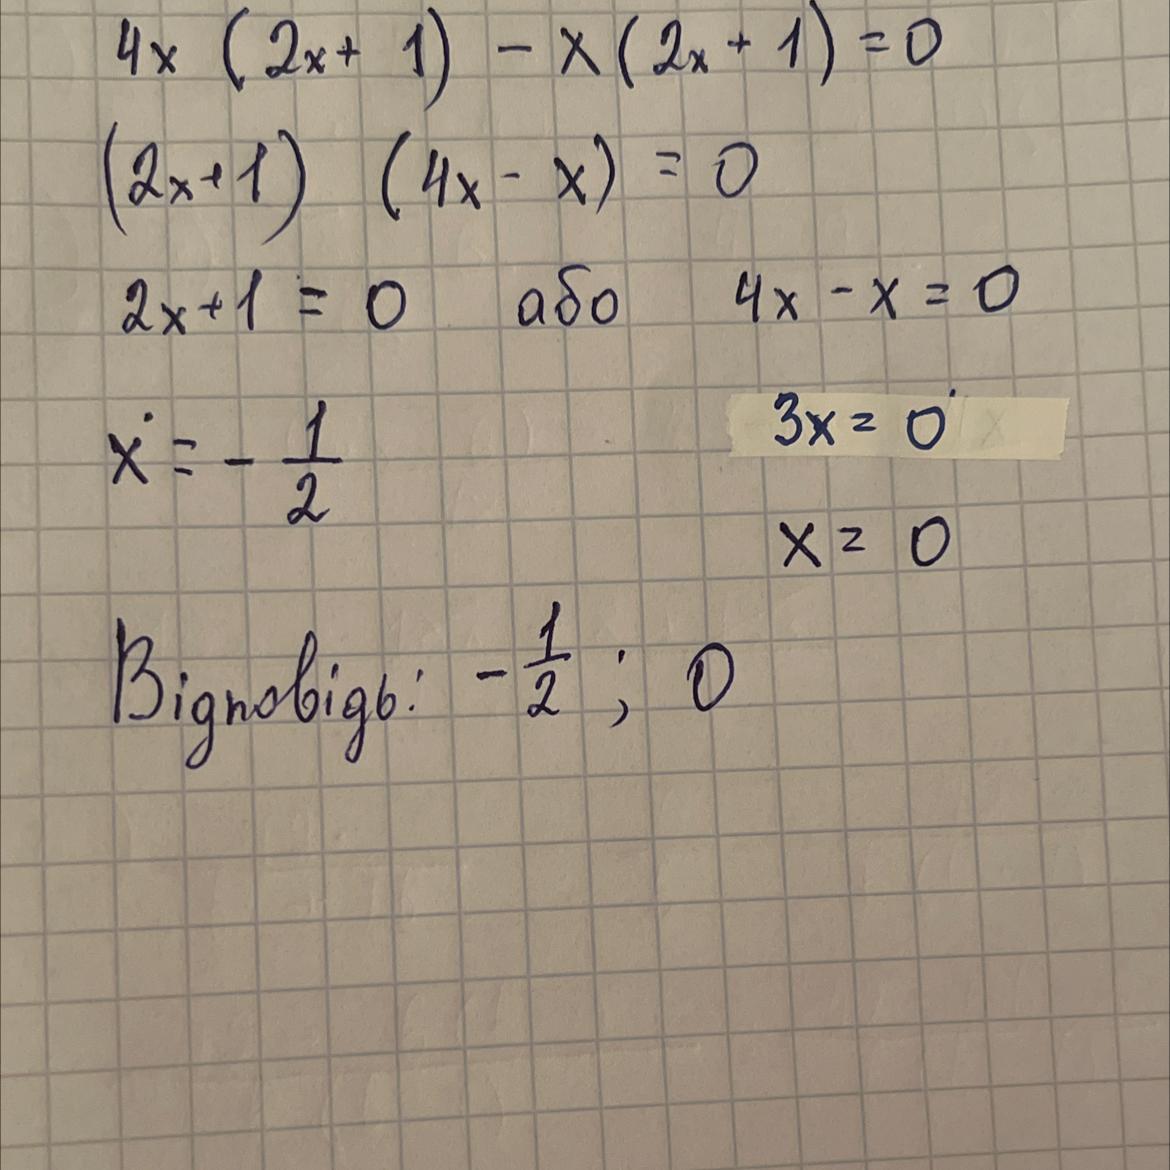 4x (2x + 1) - x (2x + 1) = 0
(2x + 1) (4x - x) = 0
2x + 1 = 0 або 4x - x = 0
x = - 1/2
3x = 0
x = 0
Відповідь: - 1/2 ; 0